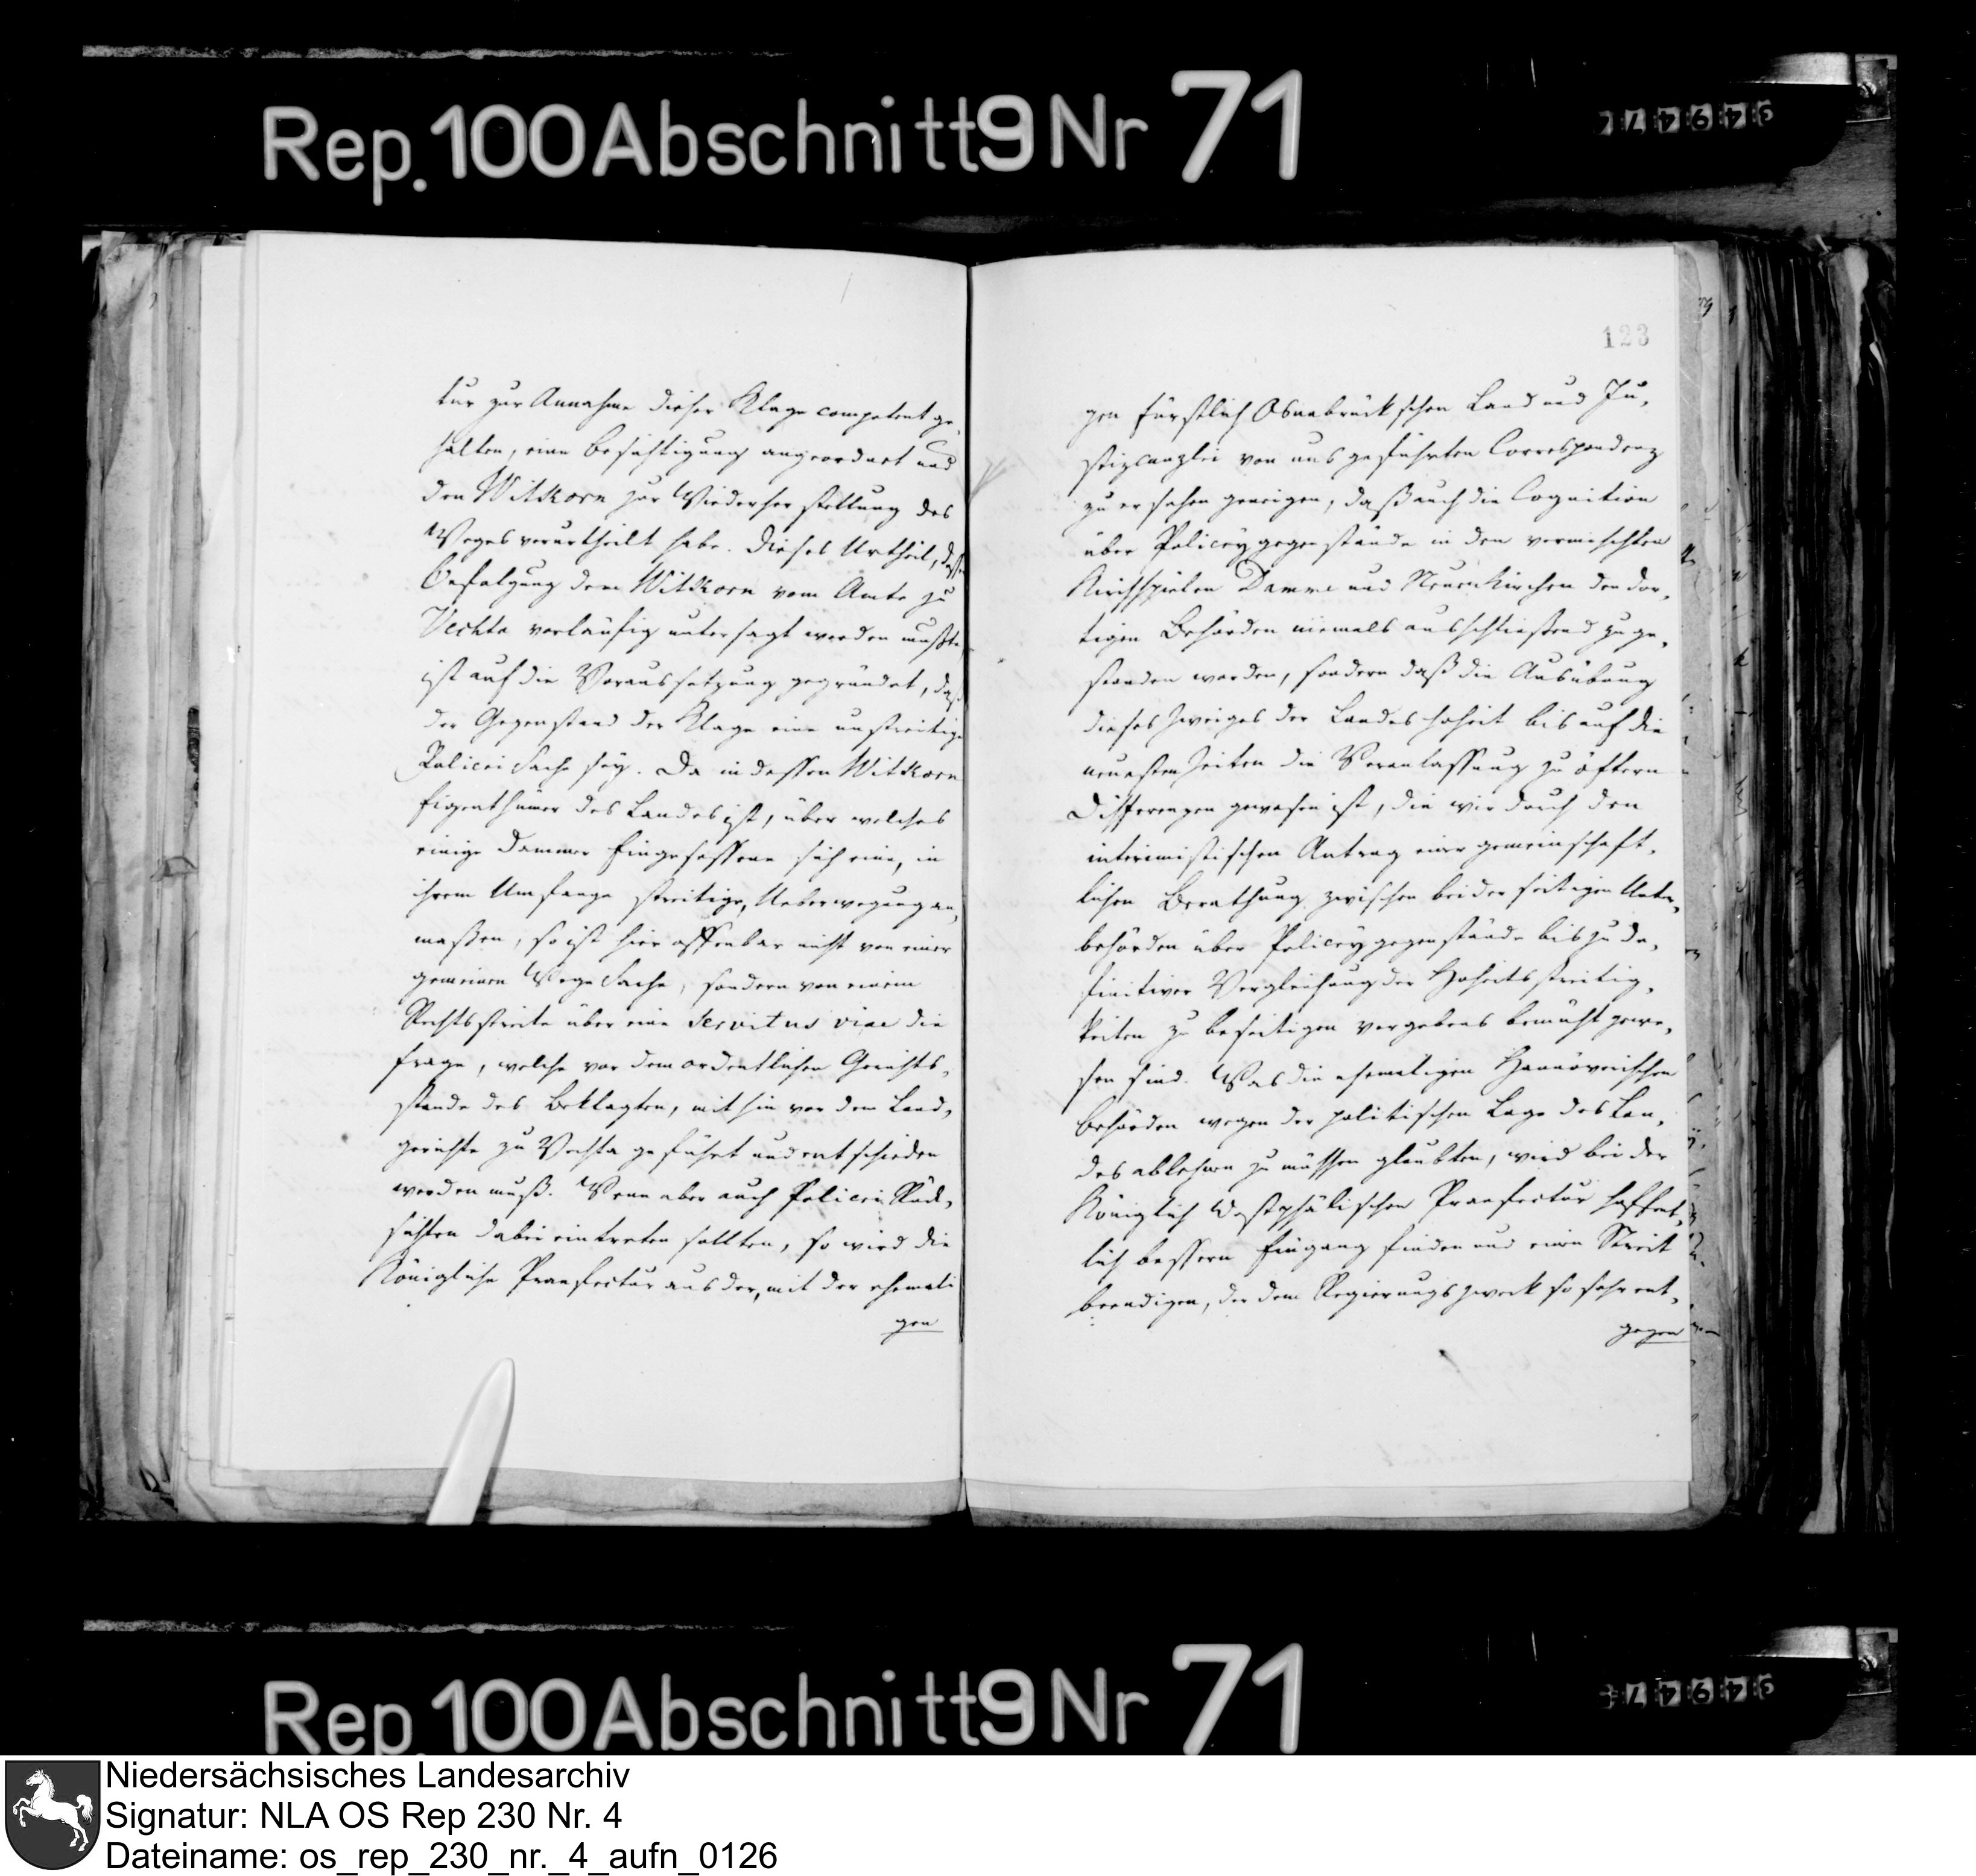 Rep. 100 Abschnitt 9 Nr 71
tur zur Annahme dieser Klage competent ge,
halten, eine Besichtigung angeordnet und
den Witkorn zur Wiederherstellung des
Weges verurtheilt habe. Dieses Urtheil, dessen
Befolgung dem Witkorn vom Amte zu
Vechta vorläufig untersagt werden mußte,
ist auf die Voraussetzung gegründet, daß
der Gegenstand der Klage eine unstreitige
Policei Sache sey. Da indessen Witkorn
Eigenthümer des Landes ist, über welches
einige Dammer Eingesessene sich eine, in
ihrem Umfange streitige, Ueberwegung an,
maßen, so ist hier offenbar nicht von einer
gemeinen Wege Sache, sondern von einem
Rechtsstreite über eine servitus viae die
Frage, welche vor dem ordentlichen Gerichts,
stande des Beklagten, mithin vor dem Land,
gerichte zu Vechta geführt und entschieden
werden muß. Wenn aber auch Policei Rück,
sichten dabei eintreten sollten, so wird die
Königliche Praefectur aus der, mit der ehemali
gen
123
gen Fürstlich Osnabrückschen Land und Ju,
stizcanzlei von uns geführten Correspondenz
zu ersehen geneigen, daß auch die Cognition
über Policeygegenstände in den vermischten
Kirchspielen Damme und Neuenkirchen den dor,
tigen Behörden niemals ausschließend zuge,
standen worden, sondern daß die Ausübung
dieses Zweiges der Landeshoheit bis auf die
neuesten Zeiten die Veranlassung zu öftern
Differenzen gewesen ist, die wir durch den
interimistischen Antrag einer gemeinschaft,
lichen Berathung zwischen beiderseitigen Unter,
behörden über Policeygegenstände bis zu de,
finitiver Vergleichung der Hoheitsstreitig,
keiten zu beseitigen vergebens bemüht gewe,
sen sind. Was die ehemaligen Hannöverischen
Behörden wegen der politischen Lage des Lan,
des ablehnen zu müssen glaubten, wird bei der
Königlich Westphälischen Praefectur hoffent,
lich bessern Eingang finden und einen Streit
beendigen, der dem Regierungszweck so sehr ent,
gegen
Rep. 100 Abschnitt 9 Nr 71
Niedersächsisches Landesarchiv
Signatur: NLA OS Rep 230 Nr. 4
Dateiname: os_rep_230_nr._4_aufn_0126